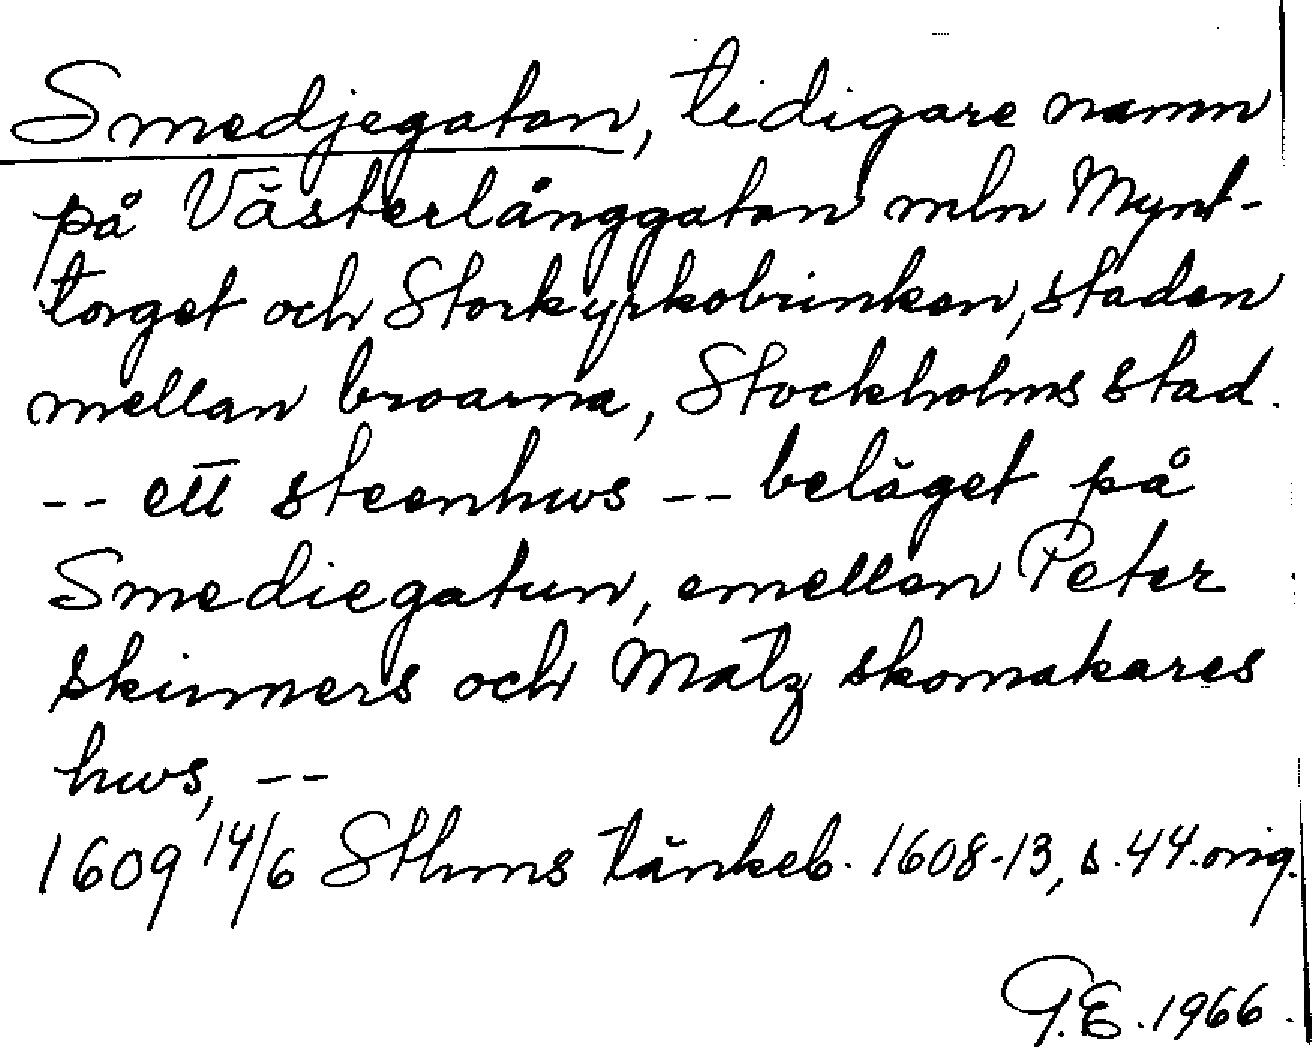 Smedjegatan, tidigare namn
på Västerlånggatan mln Mynt-
torget och Storkyrkobrinken, staden
mellan broarna, Stockholms stad.
-- ett steenhws -- beläget på
Smediegatun, emellan Peter
skinners och Matz skomakares
hws, --
1609 14/6 Sthms tänkeb. 1608-13, s. 44. orig.
G.E. 1966.